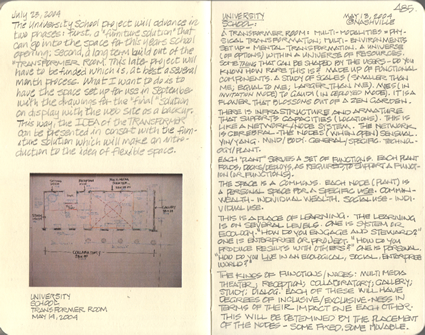 July 28, 2009
The University School project will advance in
two phases: first, a "furniture solution" that
can go into the space for this years school
opening; second, a long term build out of the
"TRANSFORMER ROOM." This later project will
have to be funded which is, at best a several
month process. What I want to do is to
have the space set up for use in September
with the drawings for the "final" solution
on display with the web site as a backup.
This way, the IDEA of the TRANSFORMER
can be presented in consort with the furni-
ture solution which will make an intro-
duction to the idea of flexible space.
UNIVERSITY
SCHOOL
TRANSFORMER ROOM
MAY 19, 2009
485
UNIVERSITY
SCHOOL:
MAY 19, 2009
@NASHVILLE
A TRANSFORMER ROOM: MULTI-MODALITIES = PHY-
SICAL TRANSFORMATION; MULTI-ENVIRONMENTS
SET-UP = MENTAL TRANSFORMATION. A UNIVERSE
(OF OPTIONS) WITHIN A UNIVERSE OF RESOURCES.
SOMETHING THAT CAN BE SHAPED BY THE USERS - DO YOU
KNOW HOW RARE THIS IS? MADE UP OF FUNCTIONAL
COMPONENTS. A STUDY OF SCALES (SMALLER THAN
ME; EQUAL TO ME; LARGER THAN ME). MIES (IN
MODE) TO GAUDI (IN MODE). IT IS A
FLOWER THAT BLOSSOMS OUT OF A ZEN GARDEN.
THERE IS INFRASTRUCTURE AND ARMATURE
THAT SUPPORTS CAPACITIES (LOCATIONS). THIS IS
LIKE A NETWORK/NODE SYSTEM. THE NETWORK
IS CEREBRAL. THE NODES (WHEN OPEN) SENSUAL.
YIN/YANG. MIND/BODY. GENERAL/SPECIFIC. TECHNOL-
OGY/PLANT.
EACH "PLANT" SERVES A SET OF FUNCTIONS. EACH PLANT
FOLDS, DEPLOYS, AS REQUIRED, TO SUPPORT A FUNCT-
ION (OR FUNCTIONS).
THE SPACE IS A COMMONS. EACH NODE (PLANT) IS
A PERSONAL SPACE FOR A SPECIFIC USE. COMMON-
WEALTH - INDIVIDUAL WEALTH. SOCIAL USE - INDI-
VIDUAL USE.
THIS IS A PLACE OF LEARNING. THE LEARNING
IS ON SEVERAL LEVELS. ONE IS SYSTEM OR
ECOLOGY: "HOW DO YOU ENGAGE AND STEWARD?"
ONE IS ENTERPRISE OR PROJECT: "HOW DO YOU
PRODUCE RESULTS WITH OTHERS?" ONE IS PERSONAL:
"HOW DO YOU LIVE IN AN ECOLOGICAL, SOCIAL, ENTERPRISE
WORLD?"
THE KINDS OF FUNCTIONS/NODES: MULTI MEDIA
THEATER; RECEPTION; COLLABORATORY; GALLERY;
STUDY; DIALOG. EACH OF THESE WILL HAVE
DEGREES OF INCLUSIVE/EXCLUSIVE-NESS IN
TERMS OF THEIR IMPACT ONE EACH OTHER.
THIS WILL BE DETERMINED BY THE PLACEMENT
OF THE NODES - SOME FIXED, SOME MOVABLE.